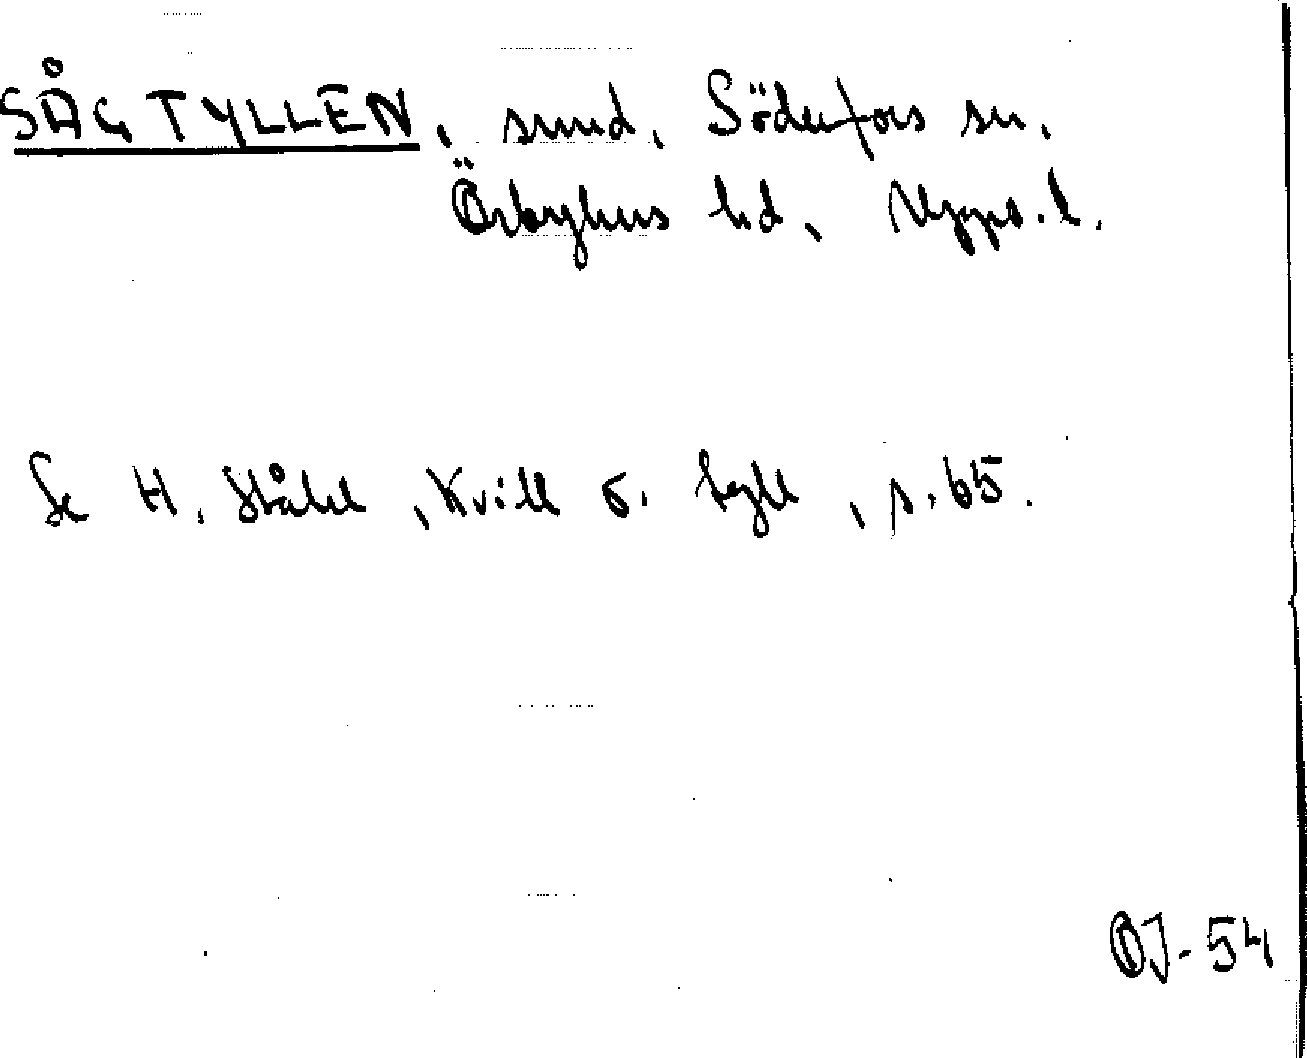 SÅGTYLLEN, sund, Söderfors sn,
Örbyhus hd, Upps. l.
Se H. Ståhl, Kvill o. tyll, s. 65.
OJ-54